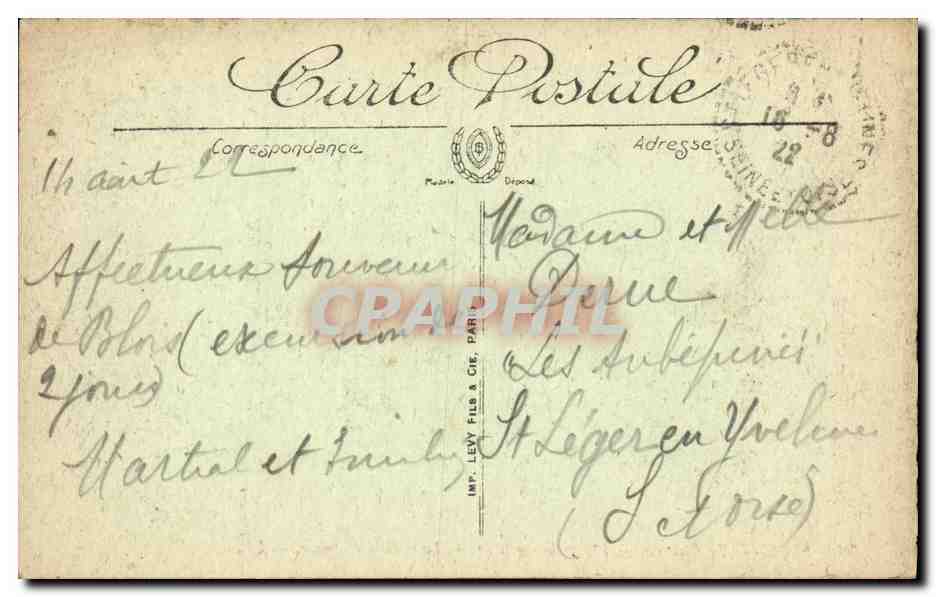 Carte Postale
Correspondance
Adresse
Modèle Déposé
16 -8
22
14 août 22
Affectueux souvenir
de Blois (excursion de
2 jours)
Martial et
Madame et
"Les Aubépines"
St Léger en Yvelines
(S et Oise)
IMP. LEVY FILS & CIE, PARIS
CPAPHIL